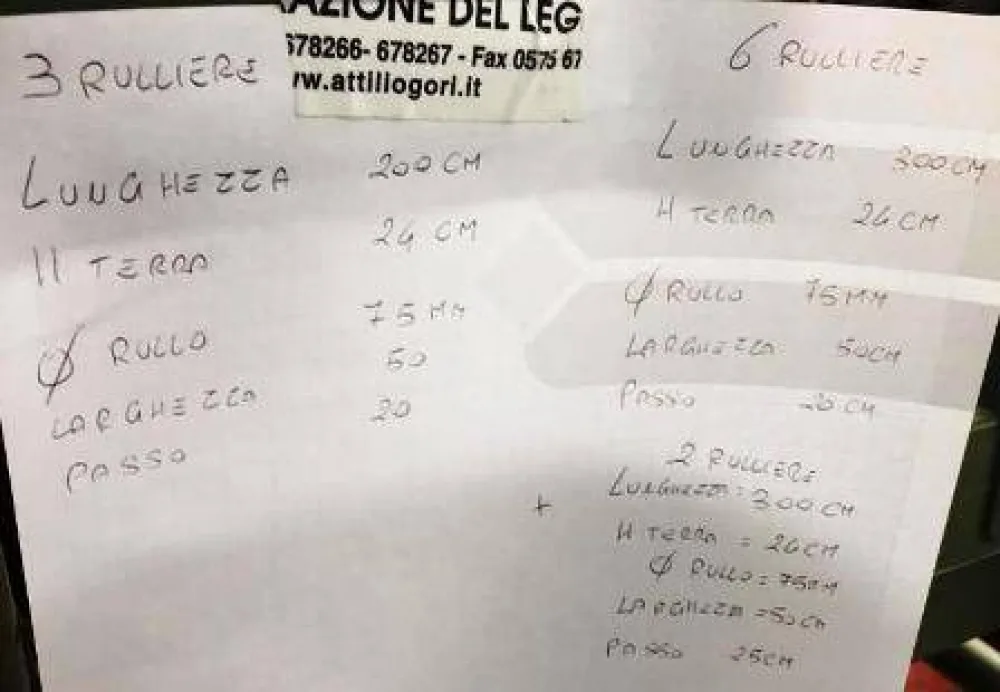 AZIONE DEL LEG
678266- 678267 - Fax 0575 67
rw.attiliogori.it
3 RULLIERE
LUNGHEZZA 200 CM
H TERRA 24 CM
Ø RULLO 75 MM
LARGHEZZA 50
PASSO 20
6 RULLIERE
LUNGHEZZA 300 CM
H TERRA 24 CM
Ø RULLO 75 MM
LARGHEZZA 50 CM
PASSO 20 CM
+
2 RULLIERE
LUNGHEZZA = 300 CM
H TERRA = 24 CM
Ø RULLO = 75 CM
LARGHEZZA = 50 CM
PASSO 25 CM